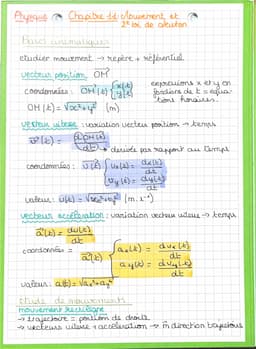 Physique Chapitre 11: Mouvement et
2e loi de Newton
Bases cinématiques
étudier mouvement → repère + référentiel
vecteur position OM
coordonnées : OM(t) { x(t) y(t)
expressions x et y en
fonctions de t = équa-
tions horaires.
OM(t) = √x²+y² (m)
vecteur vitesse : variation vecteur position → temps
v(t) = dOM(t)/dt → dérivée par rapport au temps
coordonnées : v(t) { vx(t) = dx(t)/dt
vy(t) = dy(t)/dt
valeur : v(t) = √vx²+vy² (m.s⁻¹)
vecteur accélération : variation vecteur vitesse → temps
a(t) = dv(t)/dt
coordonnées = a(t) { ax(t) = dvx(t)/dt
ay(t) = dvy(t)/dt
valeur : a(t) = √ax²+ay²
étude de mouvements
mouvement rectiligne
→ trajectoire = portion de droite
→ vecteurs vitesse + accélération → m direction